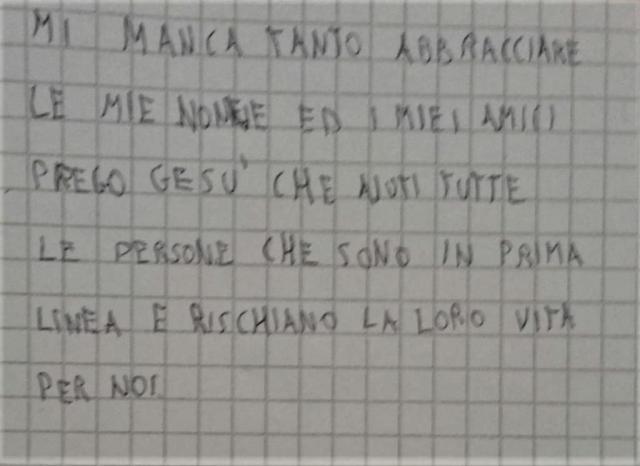 MI MANCA TANTO ABBRACCIARE
LE MIE NONNE ED I MIEI AMICI
PREGO GESU' CHE AIUTI TUTTE
LE PERSONE CHE SONO IN PRIMA
LINEA E RISCHIANO LA LORO VITA
PER NOI